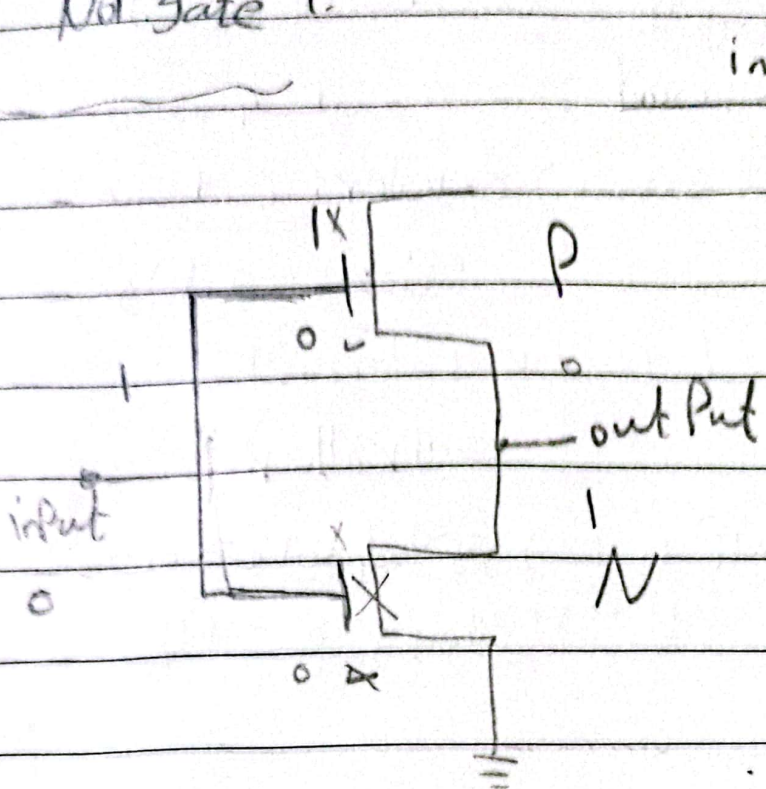 Not gate
in
1x
P
0 ✓
1
0
output
input
1
x
N
0
0 x